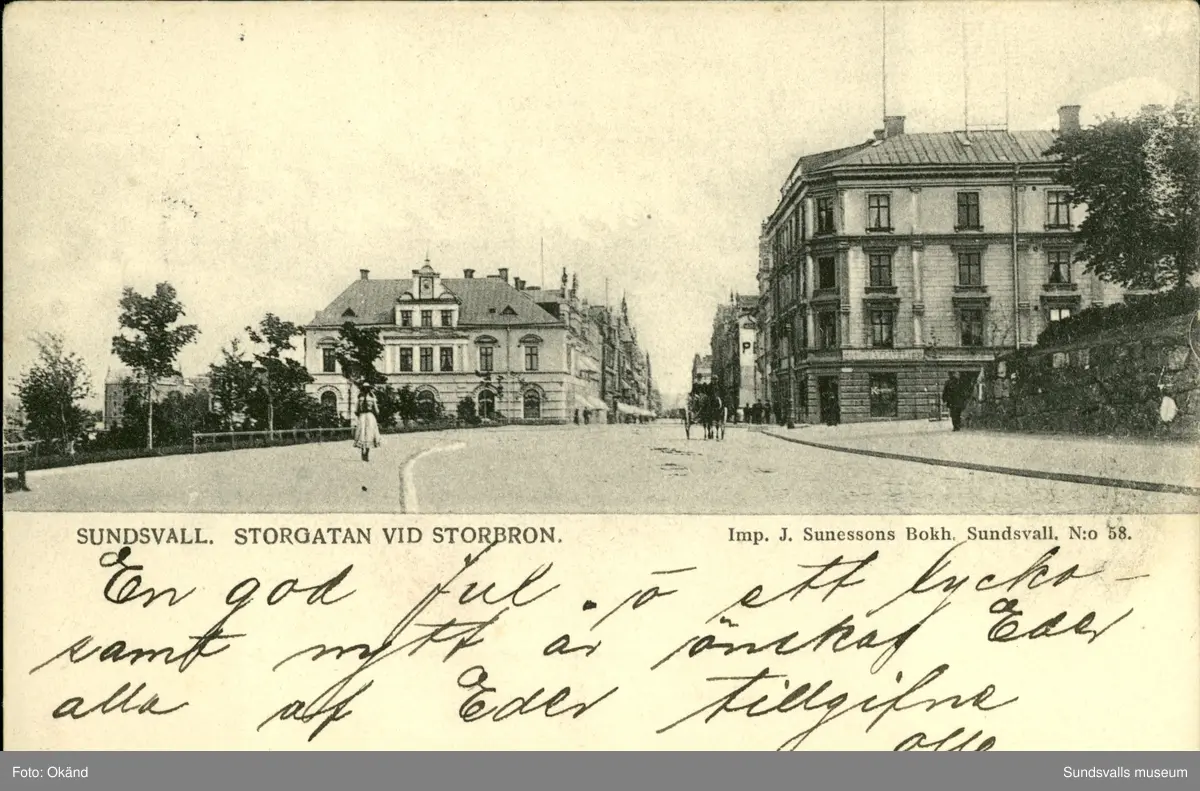 P
SUNDSVALL. STORGATAN VID STORBRON.
Imp. J. Sunessons Bokh. Sundsvall. N:o 58.
En god Jul o ett lycko-
samt nytt år önskas Eder
alla af Eder tillgifne
Olle
Foto: Okänd
Sundsvalls museum